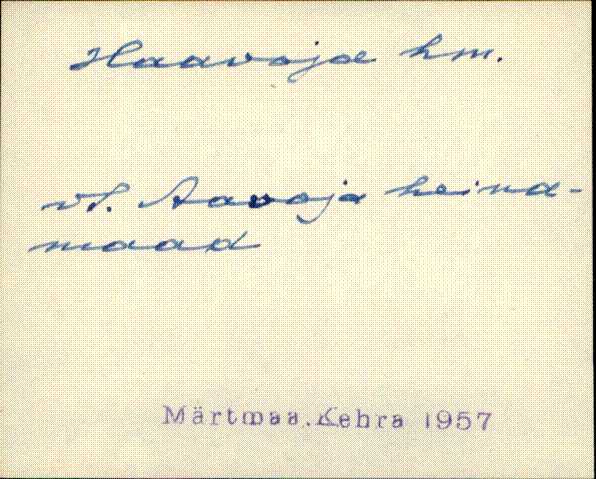 Haavoja hm.
vt. Aavoja heina-
maad
Märtmaa.Kehra 1957